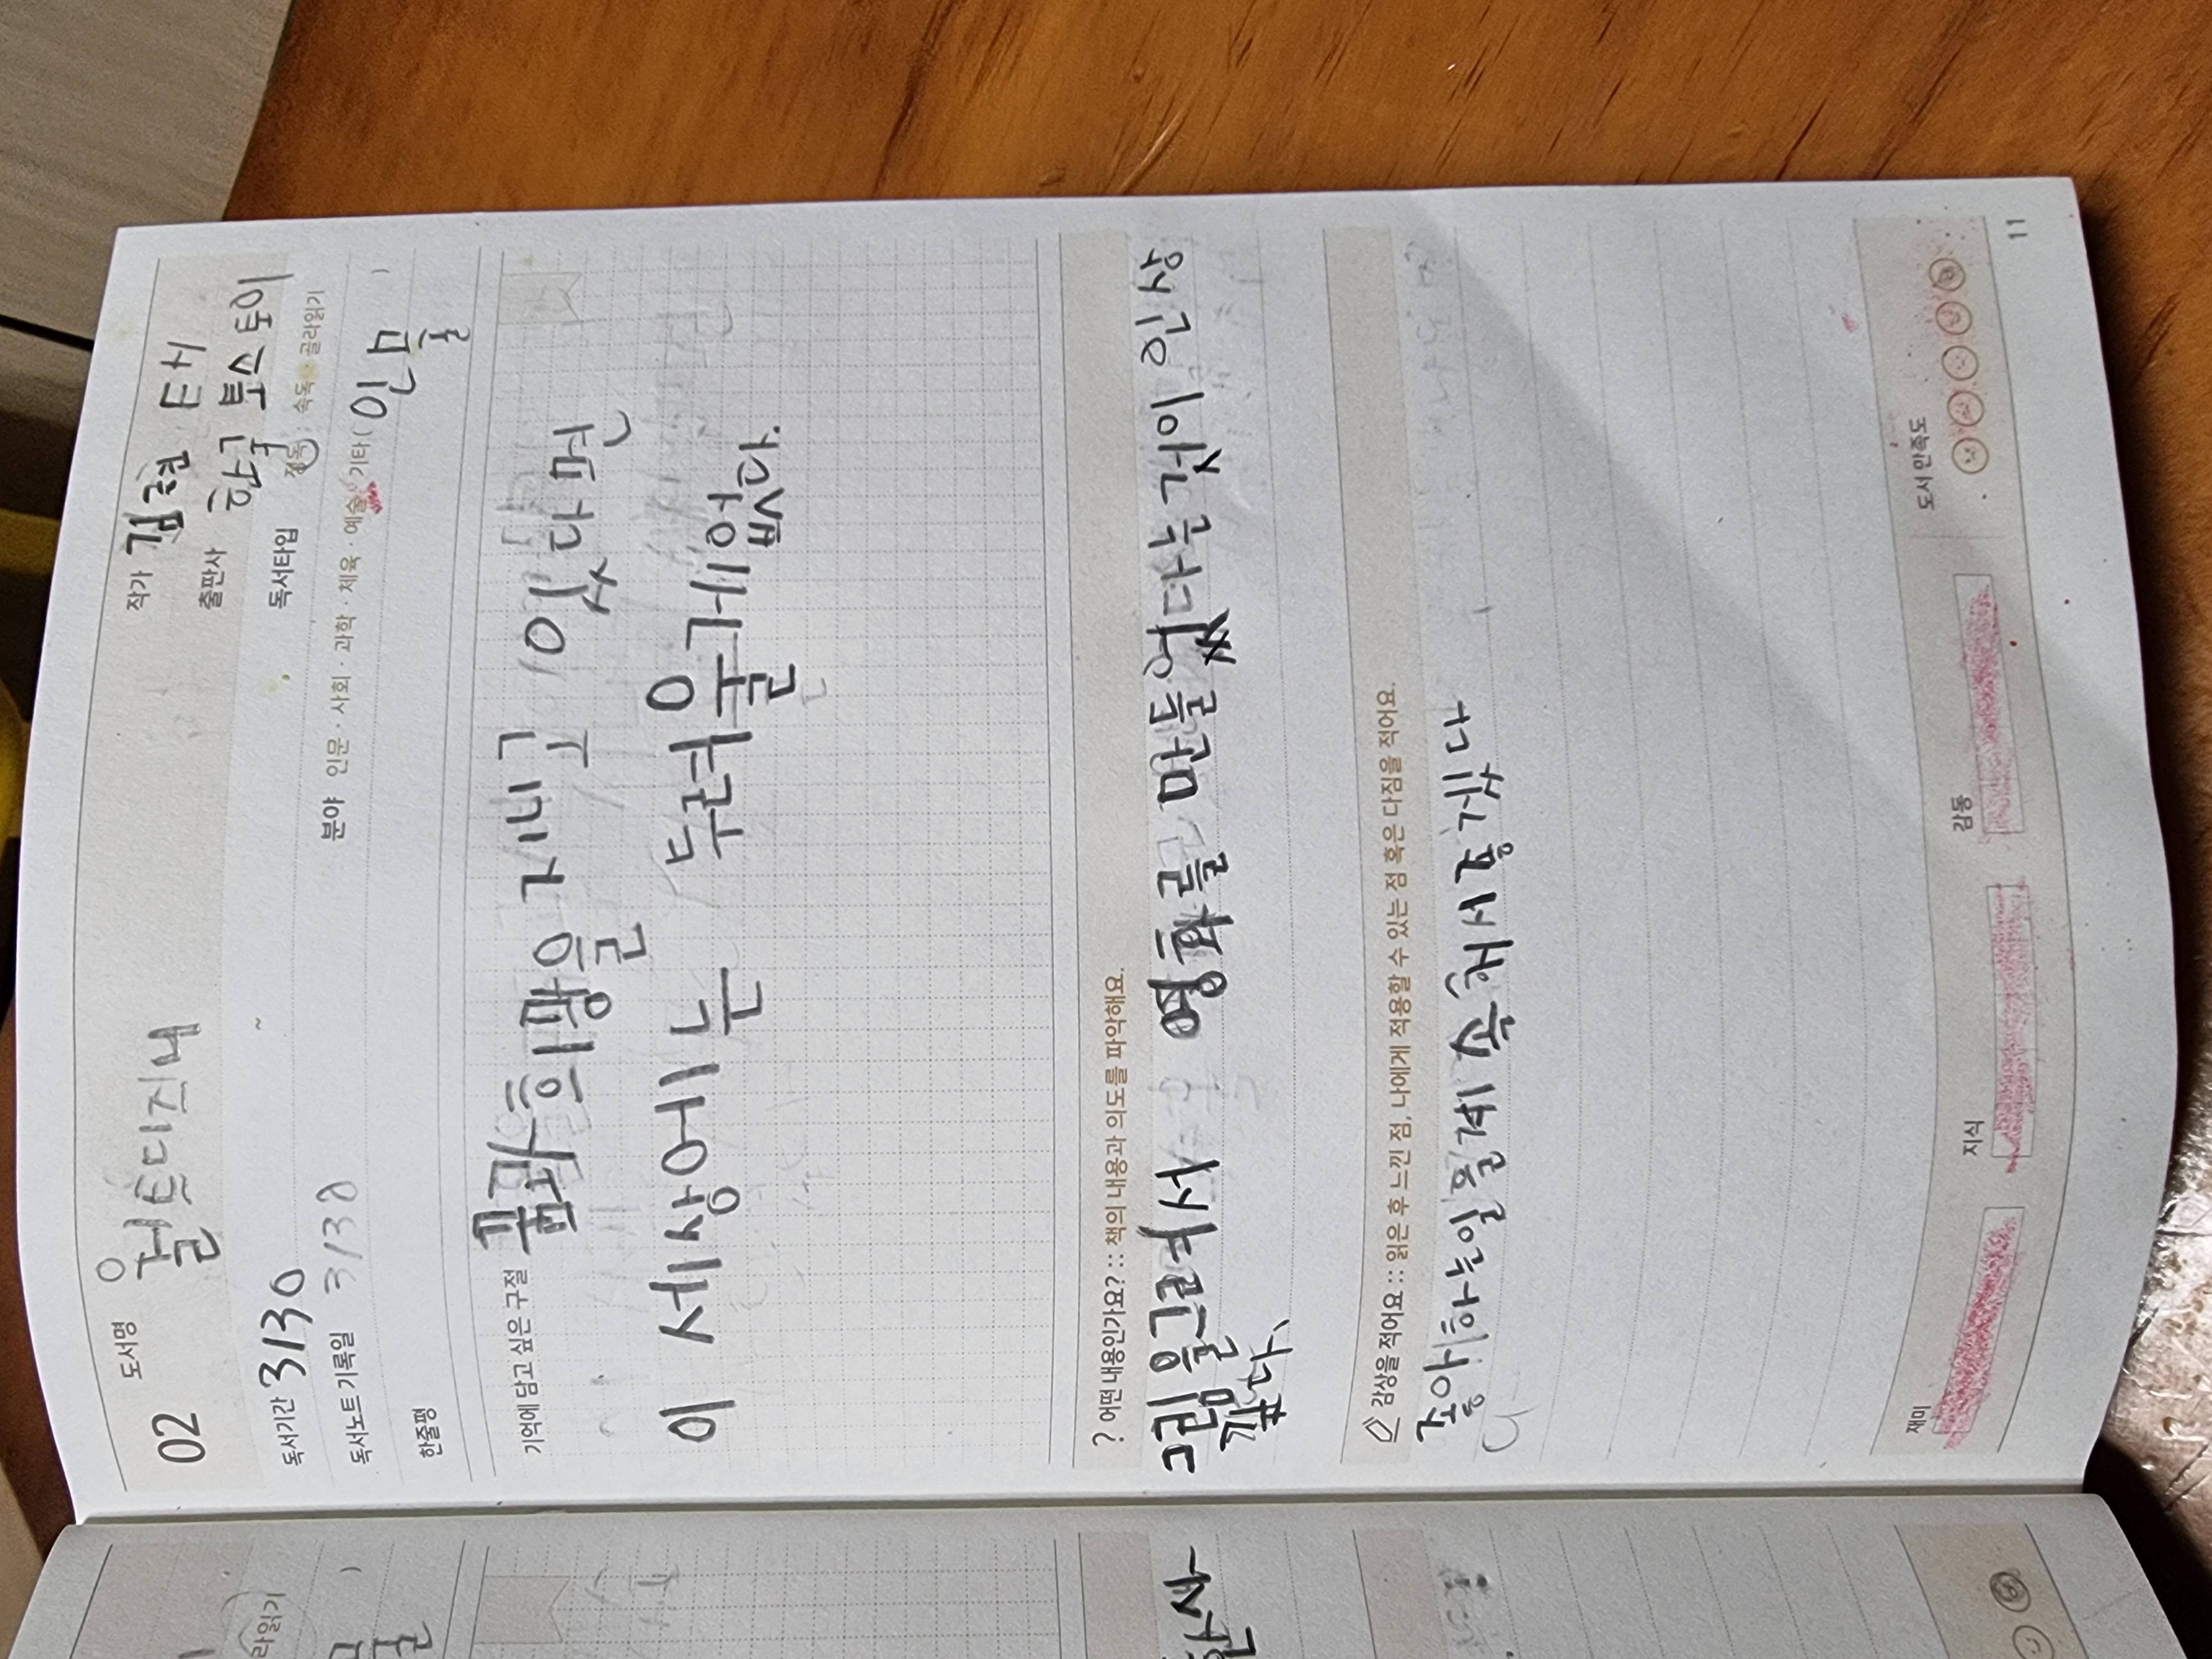 02 도서명 월트디즈니
작가 김현태
출판사 한국 톨스토이
독서기간 3/30 ~
독서타입 정독 · 속독 · 골라읽기
독서노트 기록일 3/30
분야 인문 · 사회 · 과학 · 체육 · 예술 · 기타 ( 인물 )
한줄평
기억에 담고 싶은 구절 꿈과 희망을 지니고 있다면
이 세상에는 두려울게없다.
? 어떤 내용인가요? :: 책의 내용과 의도를 파악해요.
그림을그려서 영화를 만들었다는것이 인상
깊다.
감상을 적어요 :: 읽은 후 느낀 점, 나에게 적용할 수 있는 점 혹은 다짐을 적어요.
좋아하는일을계속해서좋겠다
재미
지식
감동
도서 만족도
11
라읽기
물 )